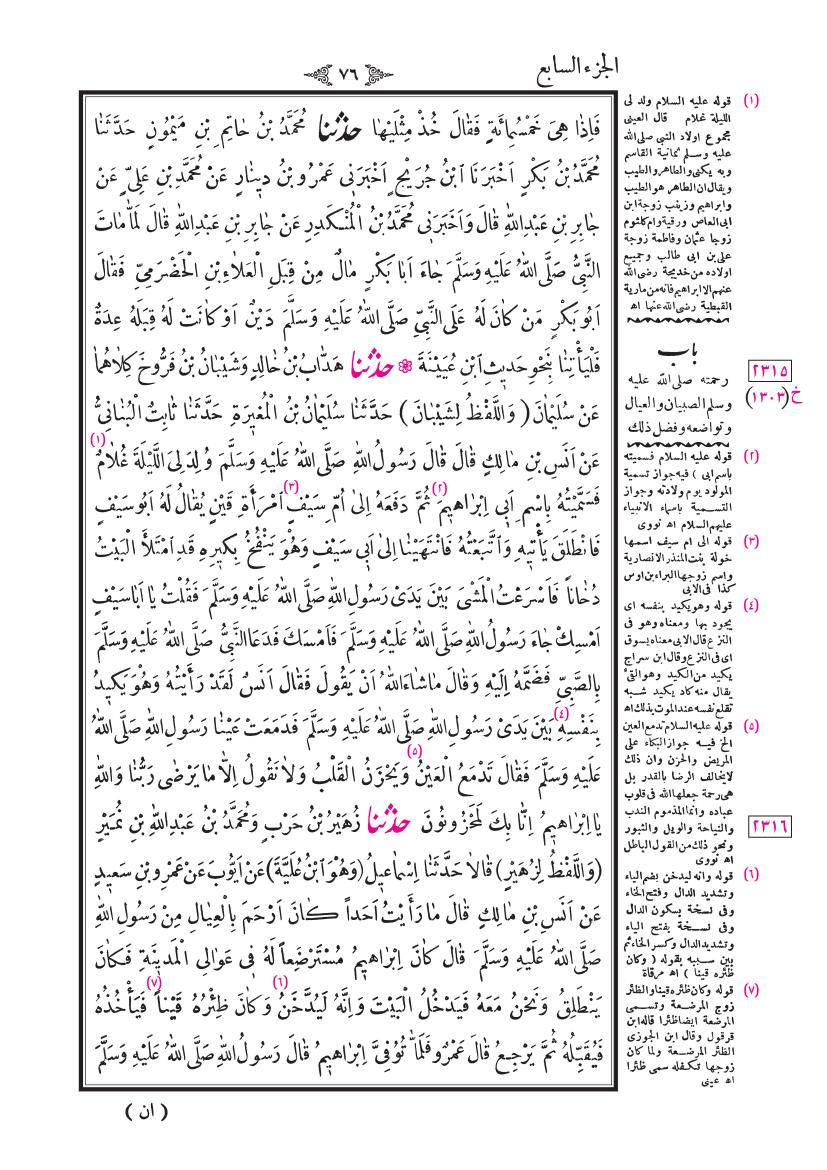 الجزء السابع
٧٦
فَاِذَا هِىَ خَمْسُمِائَةٍ فَقَالَ خُذْ مِثْلَيْهَا حدّثنا مُحَمَّدُ بْنُ حَاتِمِ بْنِ مَيْمُونٍ حَدَّثَنَا
مُحَمَّدُ بْنُ بَكْرٍ اَخْبَرَنَا ابْنُ جُرَيْجٍ اَخْبَرَنِى عَمْرُو بْنُ دِينَارٍ عَنْ مُحَمَّدِ بْنِ عَلِىٍّ عَنْ
جَابِرِ بْنِ عَبْدِاللّٰهِ قَالَ وَاَخْبَرَنِى مُحَمَّدُ بْنُ الْمُنْكَدِرِ عَنْ جَابِرِ بْنِ عَبْدِاللّٰهِ قَالَ لَمَّا مَاتَ
النَّبِىُّ صَلَّى اللّٰهُ عَلَيْهِ وَسَلَّمَ جَاءَ اَبَا بَكْرٍ مَالٌ مِنْ قِبَلِ الْعَلَاءِ بْنِ الْحَضْرَمِىِّ فَقَالَ
اَبُو بَكْرٍ مَنْ كَانَ لَهُ عَلَى النَّبِىِّ صَلَّى اللّٰهُ عَلَيْهِ وَسَلَّمَ دَيْنٌ اَوْ كَانَتْ لَهُ قِبَلَهُ عِدَةٌ
فَلْيَأْتِنَا بِنَحْوِ حَدِيثِ ابْنِ عُيَيْنَةَ ❁ حدّثنا هَدَّابُ بْنُ خَالِدٍ وَشَيْبَانُ بْنُ فَرُّوخَ كِلَاهُمَا
عَنْ سُلَيْمَانَ ( وَاللَّفْظُ لِشَيْبَانَ ) حَدَّثَنَا سُلَيْمَانُ بْنُ الْمُغِيرَةِ حَدَّثَنَا ثَابِتٌ الْبُنَانِىُّ
عَنْ اَنَسِ بْنِ مَالِكٍ قَالَ قَالَ رَسُولُ اللّٰهِ صَلَّى اللّٰهُ عَلَيْهِ وَسَلَّمَ وُلِدَ لِىَ اللَّيْلَةَ غُلَامٌ (١)
فَسَمَّيْتُهُ بِاسْمِ اَبِى اِبْرَاهِيمَ (٢) ثُمَّ دَفَعَهُ اِلٰى اُمِّ سَيْفٍ (٣) امْرَأَةِ قَيْنٍ يُقَالُ لَهُ اَبُو سَيْفٍ
فَانْطَلَقَ يَأْتِيهِ وَاتَّبَعْتُهُ فَانْتَهَيْنَا اِلٰى اَبِى سَيْفٍ وَهُوَ يَنْفُخُ بِكِيرِهِ قَدِ امْتَلَأَ الْبَيْتُ
دُخَاناً فَاَسْرَعْتُ الْمَشْىَ بَيْنَ يَدَىْ رَسُولِ اللّٰهِ صَلَّى اللّٰهُ عَلَيْهِ وَسَلَّمَ فَقُلْتُ يَا اَبَا سَيْفٍ
اَمْسِكْ جَاءَ رَسُولُ اللّٰهِ صَلَّى اللّٰهُ عَلَيْهِ وَسَلَّمَ فَاَمْسَكَ فَدَعَا النَّبِىُّ صَلَّى اللّٰهُ عَلَيْهِ وَسَلَّمَ
بِالصَّبِىِّ فَضَمَّهُ اِلَيْهِ وَقَالَ مَا شَاءَ اللّٰهُ اَنْ يَقُولَ فَقَالَ اَنَسٌ لَقَدْ رَأَيْتُهُ وَهُوَ يَكِيدُ
بِنَفْسِهِ (٤) بَيْنَ يَدَىْ رَسُولِ اللّٰهِ صَلَّى اللّٰهُ عَلَيْهِ وَسَلَّمَ فَدَمَعَتْ عَيْنَا رَسُولِ اللّٰهِ صَلَّى اللّٰهُ
عَلَيْهِ وَسَلَّمَ فَقَالَ تَدْمَعُ الْعَيْنُ (٥) وَيَحْزَنُ الْقَلْبُ وَلَا نَقُولُ اِلَّا مَا يَرْضٰى رَبُّنَا وَاللّٰهِ
يَا اِبْرَاهِيمُ اِنَّا بِكَ لَمَحْزُونُونَ حدّثنا زُهَيْرُ بْنُ حَرْبٍ وَمُحَمَّدُ بْنُ عَبْدِ اللّٰهِ بْنِ نُمَيْرٍ
(وَاللَّفْظُ لِزُهَيْرٍ) قَالَا حَدَّثَنَا اِسْمَاعِيلُ (وَهُوَ ابْنُ عُلَيَّةَ) عَنْ اَيُّوبَ عَنْ عَمْرِو بْنِ سَعِيدٍ
عَنْ اَنَسِ بْنِ مَالِكٍ قَالَ مَا رَأَيْتُ اَحَداً كَانَ اَرْحَمَ بِالْعِيَالِ مِنْ رَسُولِ اللّٰهِ
صَلَّى اللّٰهُ عَلَيْهِ وَسَلَّمَ قَالَ كَانَ اِبْرَاهِيمُ مُسْتَرْضِعاً لَهُ فِى عَوَالِى الْمَدِينَةِ فَكَانَ
يَنْطَلِقُ وَنَحْنُ مَعَهُ فَيَدْخُلُ الْبَيْتَ وَاِنَّهُ لَيُدَّخَنُ (٦) وَكَانَ ظِئْرُهُ قَيْناً (٧) فَيَأْخُذُهُ
فَيُقَبِّلُهُ ثُمَّ يَرْجِعُ قَالَ عَمْرٌو فَلَمَّا تُوُفِّىَ اِبْرَاهِيمُ قَالَ رَسُولُ اللّٰهِ صَلَّى اللّٰهُ عَلَيْهِ وَسَلَّمَ
( ان )
(١) قوله عليه السلام ولد لى
الليلة غلام قال العينى
مجموع اولاد النبى صلى الله
عليه وسلم ثمانية القاسم
وبه يكنى والطاهر والطيب
ويقال ان الطاهر هو الطيب
وابراهيم وزينب زوجة ابن
ابى العاص ورقية وام كلثوم
زوجا عثمان وفاطمة زوجة
على بن ابى طالب وجميع
اولاده من خديجة رضى الله
عنهم الا ابراهيم فانه من مارية
القبطية رضى الله عنها اه
باب
رحمته صلى الله عليه
وسلم الصبيان والعيال
وتواضعه وفضل ذلك
٢٣١٥
خ (١٣٠٣)
(٢) قوله عليه السلام فسميته
باسم ابى ) فيه جواز تسمية
المولود يوم ولادته وجواز
التسمية باسماء الانبياء
عليهم السلام اه نووى
(٣) قوله الى ام سيف اسمها
خولة بنت المنذر الانصارية
واسم زوجها البراء بن اوس
كذا فى الابى
(٤) قوله وهو يكيد بنفسه اى
يجود بها ومعناه وهو فى
النزع قال الابى معناه يسوق
اى فى النزع وقال ابن سراج
يكيد من الكيد وهو القىء
يقال منه كاد يكيد شبه
تقلع نفسه عند الموت بذلك اه
(٥) قوله عليه السلام تدمع العين
الخ فيه جواز البكاء على
المريض والحزن وان ذلك
لا يخالف الرضا بالقدر بل
هى رحمة جعلها الله فى قلوب
عباده وانما المذموم الندب
والنياحة والويل والثبور
ونحو ذلك من القول الباطل
اه نووى
٢٣١٦
(٦) قوله وانه ليدخن بضم الياء
وتشديد الدال وفتح الخاء
وفى نسخة بسكون الدال
وفى نسخة بفتح الياء
وتشديد الدال وكسر الخاء ثم
بين سببيه بقوله ( وكان
ظئره قينا ) اه مرقاة
(٧) قوله وكان ظئره قينا والظئر
زوج المرضعة وتسمى
المرضعة ايضا ظئرا قاله ابن
قرقول وقال ابن الجوزى
الظئر المرضعة ولما كان
زوجها تكفله سمى ظئرا
اه عينى